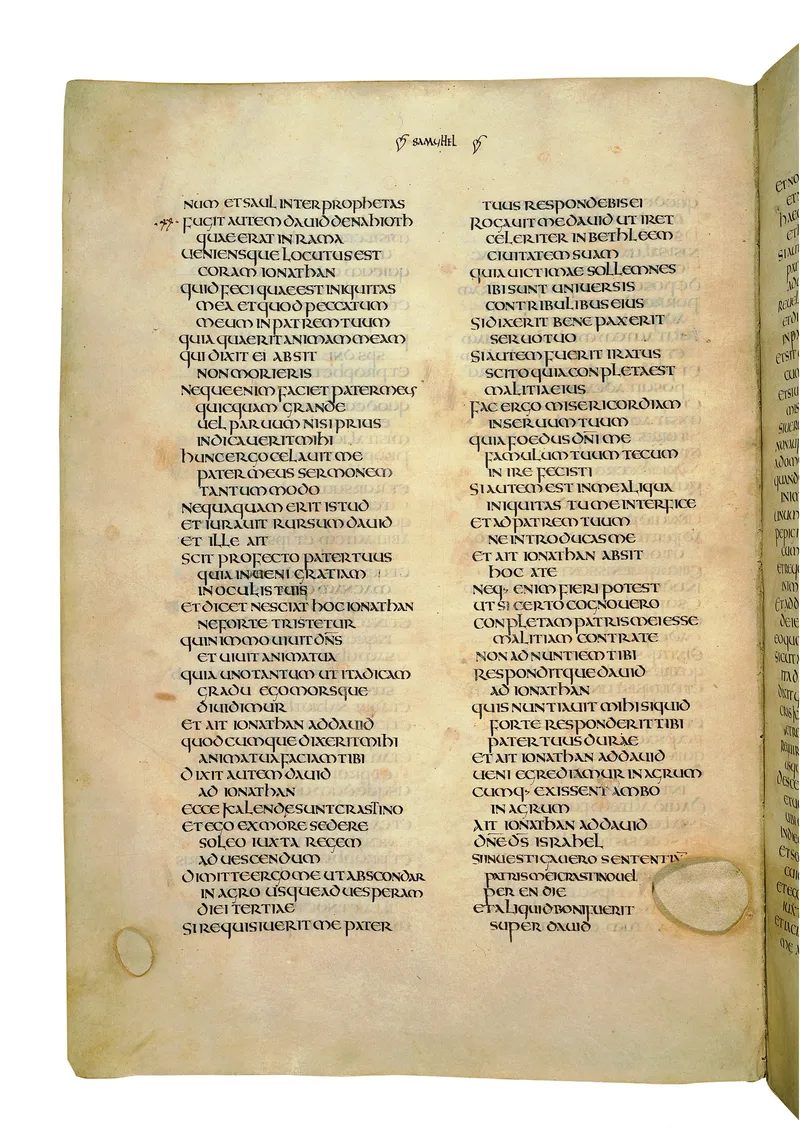 SAMUHEL
NUM ET SAUL INTER PROPHETAS
FUGIT AUTEM DAUID DE NAHIOTH
QUAE ERAT IN RAMA
UENIENSQUE LOCUTUS EST
CORAM IONATHAN
QUID FECI QUAE EST INIQUITAS
MEA ET QUOD PECCATUM
MEUM IN PATREM TUUM
QUIA QUAERIT ANIMAM MEAM
QUI DIXIT EI ABSIT
NON MORIERIS
NEQUE ENIM FACIET PATER MEUS
QUICQUAM GRANDE
UEL PARUUM NISI PRIUS
INDICAUERIT MIHI
HUNC ERGO CELAUIT ME
PATER MEUS SERMONEM
TANTUM MODO
NEQUAQUAM ERIT ISTUD
ET IURAUIT RURSUM DAUID
ET ILLE AIT
SCIT PROFECTO PATER TUUS
QUIA INUENI GRATIAM
IN OCULIS TUIS
ET DICET NESCIAT HOC IONATHAN
NE FORTE TRISTETUR
QUINIMMO UIUIT DNS
ET UIUIT ANIMA TUA
QUIA UNO TANTUM UT ITA DICAM
GRADU EGO MORSQUE
DIUIDIMUR
ET AIT IONATHAN AD DAUID
QUODCUMQUE DIXERIT MIHI
ANIMA TUA FACIAM TIBI
DIXIT AUTEM DAUID
AD IONATHAN
ECCE KALENDE SUNT CRASTINO
ET EGO EX MORE SEDERE
SOLEO IUXTA REGEM
AD UESCENDUM
DIMITTE ERGO ME UT ABSCONDAR
IN AGRO USQUE AD UESPERAM
DIEI TERTIAE
SI REQUISIUERIT ME PATER
TUUS RESPONDEBIS EI
ROGAUIT ME DAUID UT IRET
CELERITER IN BETHLEEM
CIUITATEM SUAM
QUIA UICTIMAE SOLLEMNES
IBI SUNT UNIUERSIS
CONTRIBULIBUS EIUS
SI DIXERIT BENE PAX ERIT
SERUO TUO
SI AUTEM FUERIT IRATUS
SCITO QUIA CONPLETA EST
MALITIA EIUS
FAC ERGO MISERICORDIAM
IN SERUUM TUUM
QUIA FOEDUS DNI ME
FAMULUM TUUM TECUM
IN IRE FECISTI
SI AUTEM EST IN ME ALIQUA
INIQUITAS TU ME INTERFICE
ET AD PATREM TUUM
NE INTRODUCAS ME
ET AIT IONATHAN ABSIT
HOC A TE
NEQ· ENIM FIERI POTEST
UT SI CERTO COGNOUERO
CONPLETAM PATRIS MEI ESSE
MALITIAM CONTRA TE
NON ADNUNTIEM TIBI
RESPONDITQUE DAUID
AD IONATHAN
QUIS NUNTIAUIT MIHI SI QUID
FORTE RESPONDERIT TIBI
PATER TUUS DURAE
ET AIT IONATHAN AD DAUID
UENI EGREDIAMUR IN AGRUM
CUMQ· EXISSENT AMBO
IN AGRUM
AIT IONATHAN AD DAUID
DNE DS ISRAHEL
SI INUESTIGAUERO SENTENTIA
PATRIS MEI CRASTINO UEL
PERENDIE
ET ALIQUID BONI FUERIT
SUPER DAUID